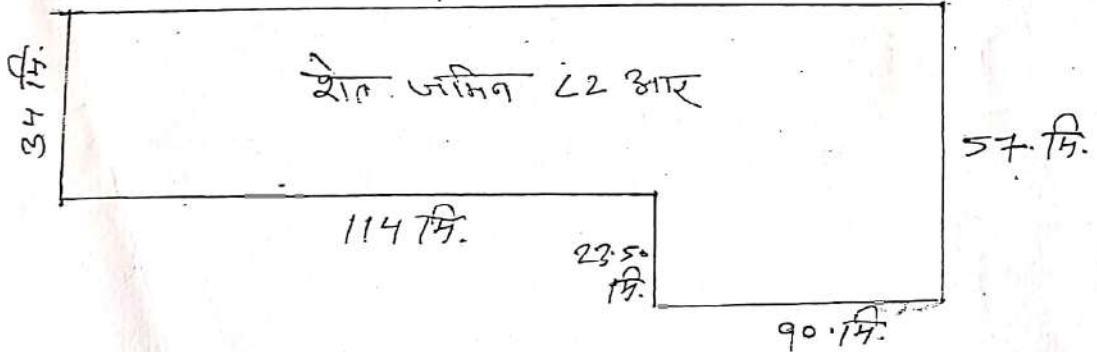 34 मि.
शेत. जमिन ८२ आर
57. मि.
114 मि.
23.50
मि.
90. मि.